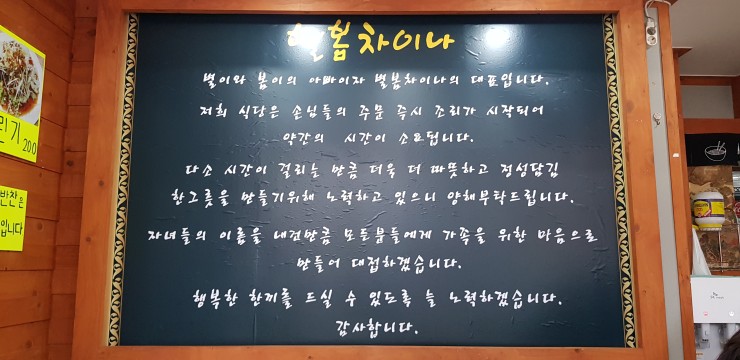 별봄차이나
별이와 봄이의 아빠이자 별봄차이나의 대표입니다.
저희 식당은 손님들의 주문 즉시 조리가 시작되어
약간의 시간이 소요됩니다.
다소 시간이 걸리는 만큼 더욱 더 따뜻하고 정성담김
한그릇을 만들기위해 노력하고 있으니 양해부탁드립니다.
자녀들의 이름을 내건만큼 모든분들에게 가족을 위한 마음으로
만들어 대접하겠습니다.
행복한 한끼를 드실 수 있도록 늘 노력하겠습니다.
감사합니다.
민기 200
반찬은
입니다